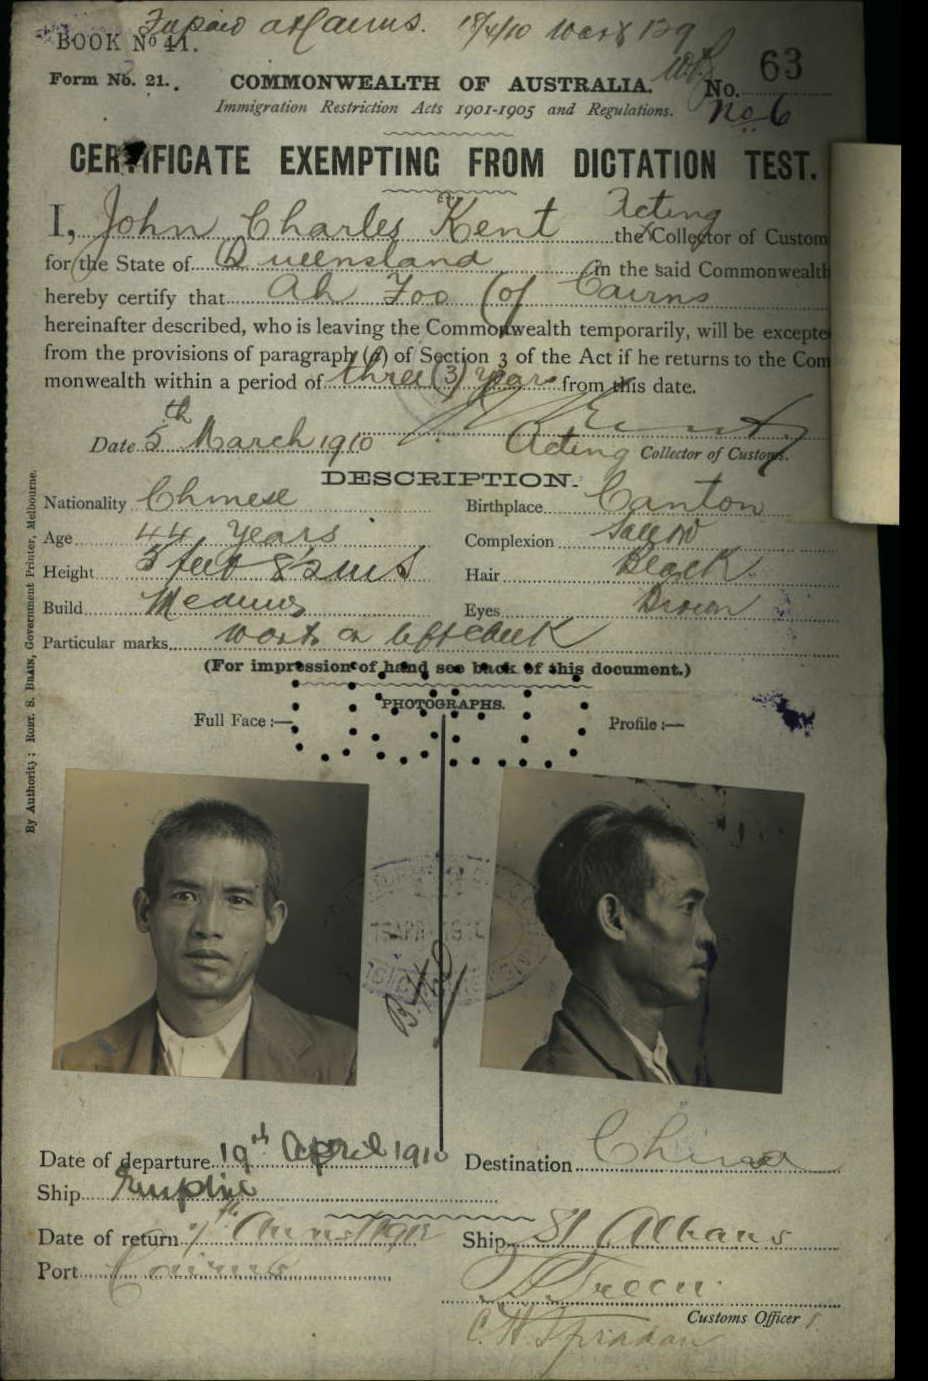 BOOK No 41.
at Cairns. 18/4/10
Form No. 21.
COMMONWEALTH OF AUSTRALIA.
No. 63
Immigration Restriction Acts 1901-1905 and Regulations.
No 6
CERTIFICATE EXEMPTING FROM DICTATION TEST.
I, John Charles Kent the Acting Collector of Custom
for the State of Queensland in the said Commonwealth
hereby certify that Ah Foo (of Cairns
hereinafter described, who is leaving the Commonwealth temporarily, will be excepte
from the provisions of paragraph (a) of Section 3 of the Act if he returns to the Com
monwealth within a period of three (3) years from this date.
Date 5th March 1910
Acting Collector of Customs.
DESCRIPTION.
Nationality Chinese
Birthplace Canton
Age 44 years
Complexion Sallow
Height 5 feet 8½ ins
Hair Black
Build Medium
Eyes Brown
Particular marks wart on left cheek
(For impression of hand see back of this document.)
PHOTOGRAPHS.
Full Face :—
Profile :—
By Authority: ROBT. S. BRAIN, Government Printer, Melbourne.
Date of departure 19th April 1910
Destination China
Ship Empire
Date of return
Ship St Albans
Port Cairns
Green
Customs Officer